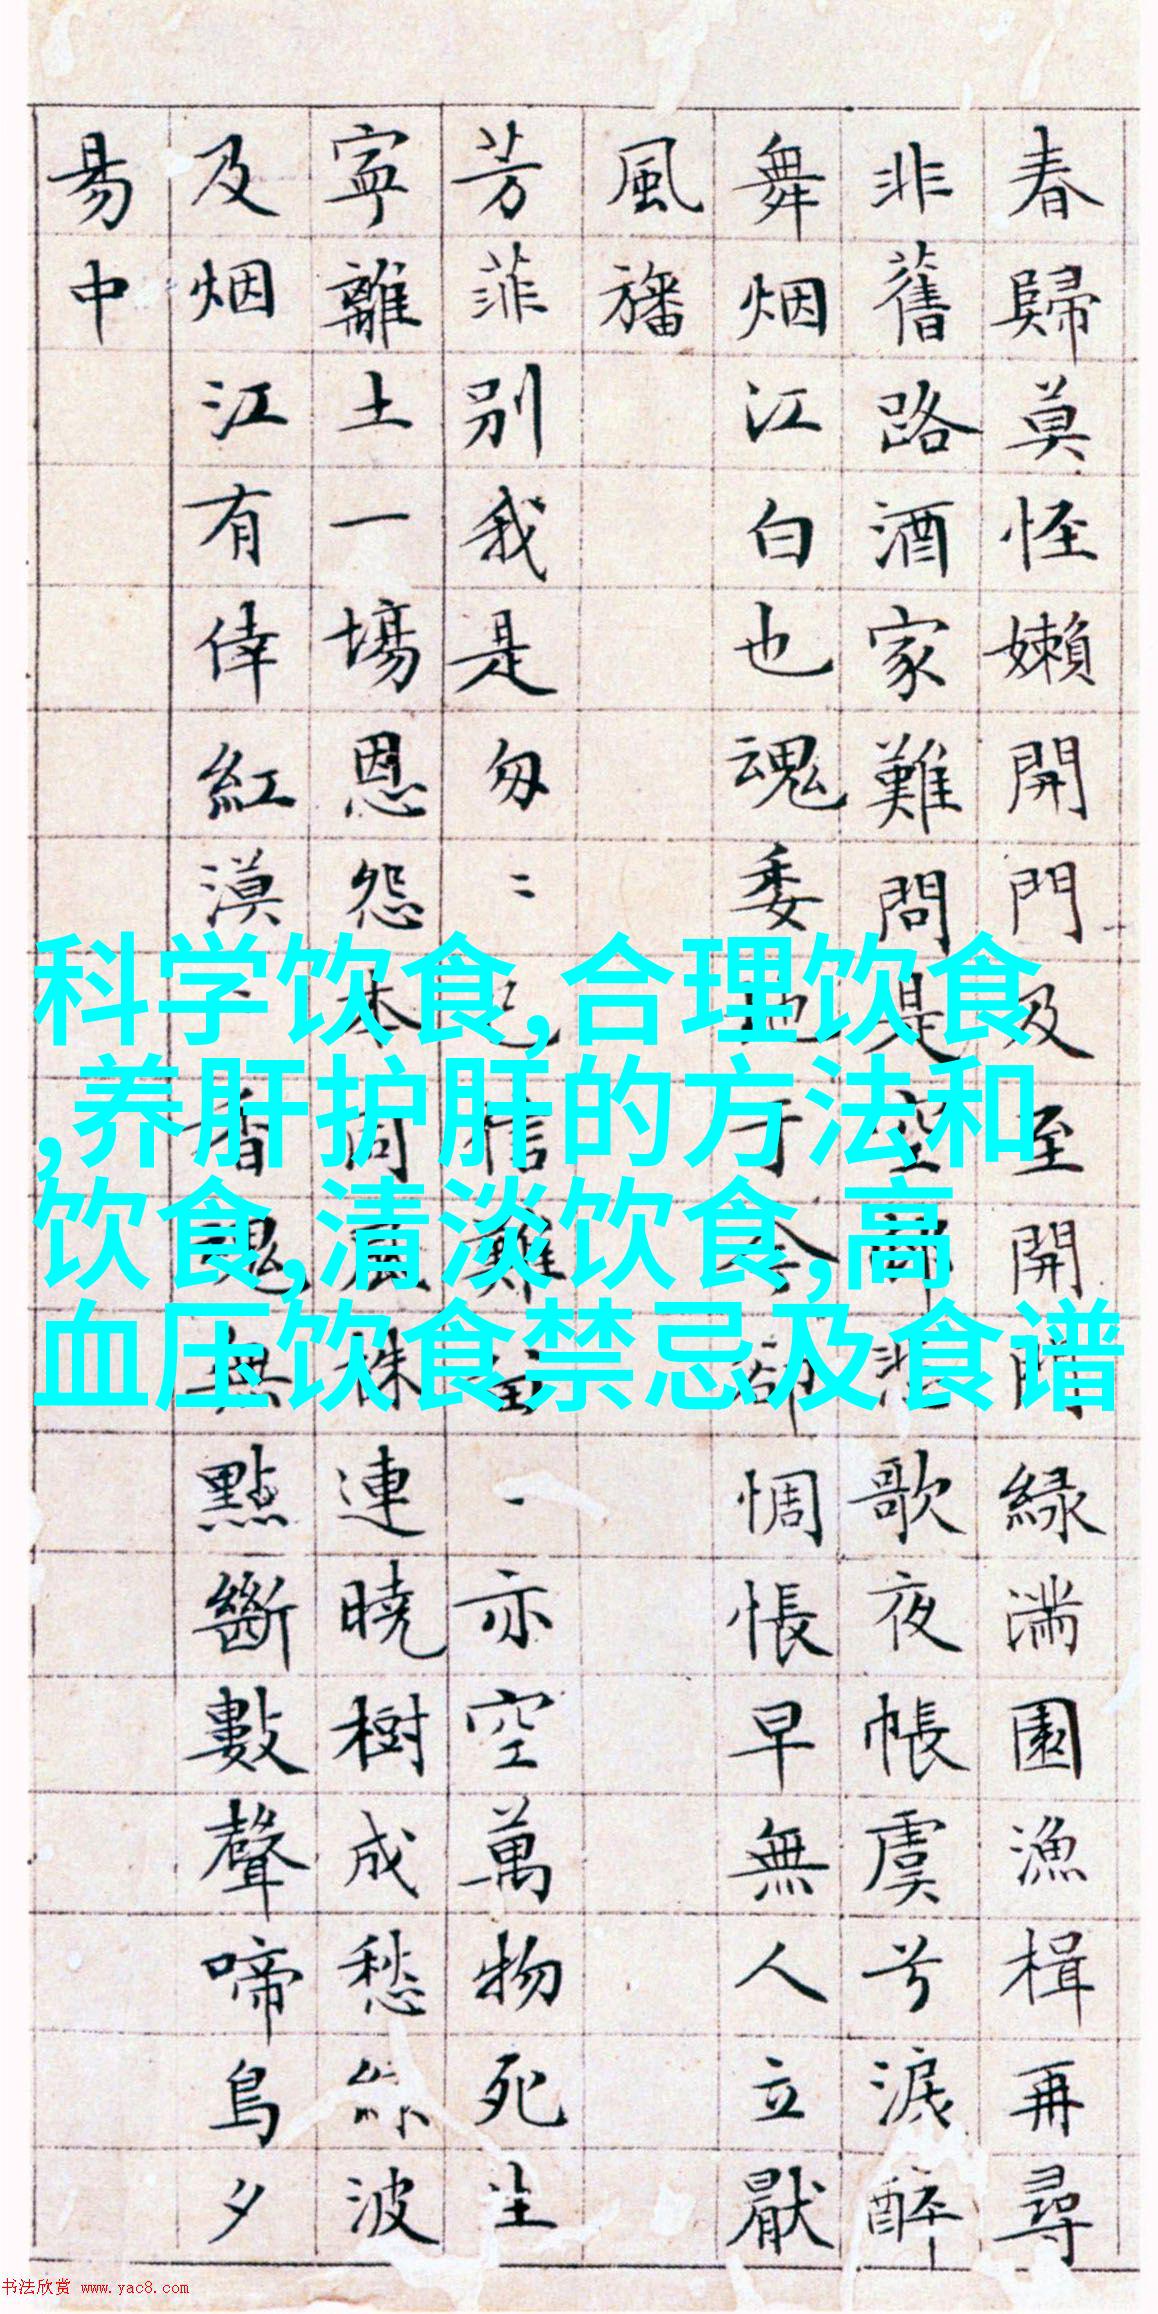 春歸莫怪嬾開門及至開門綠滿園漁楫再尋
非舊路酒家難問是空邨悲歌夜帳虞兮淚醉
舞烟江白也魂委地于今卻惆悵早無人立厭
風旛
芳菲別我是匆〻已信難留一亦空萬物死生
寧離土一場恩怨本同風株連曉樹成愁波
及烟江有倖紅漠〻香魂無點斷數聲啼鳥夕
易中
科学饮食,合理饮食
,养肝护肝的方法和
饮食,清淡饮食,高
血压饮食禁忌及食谱
书法欣赏 www.yac8.com